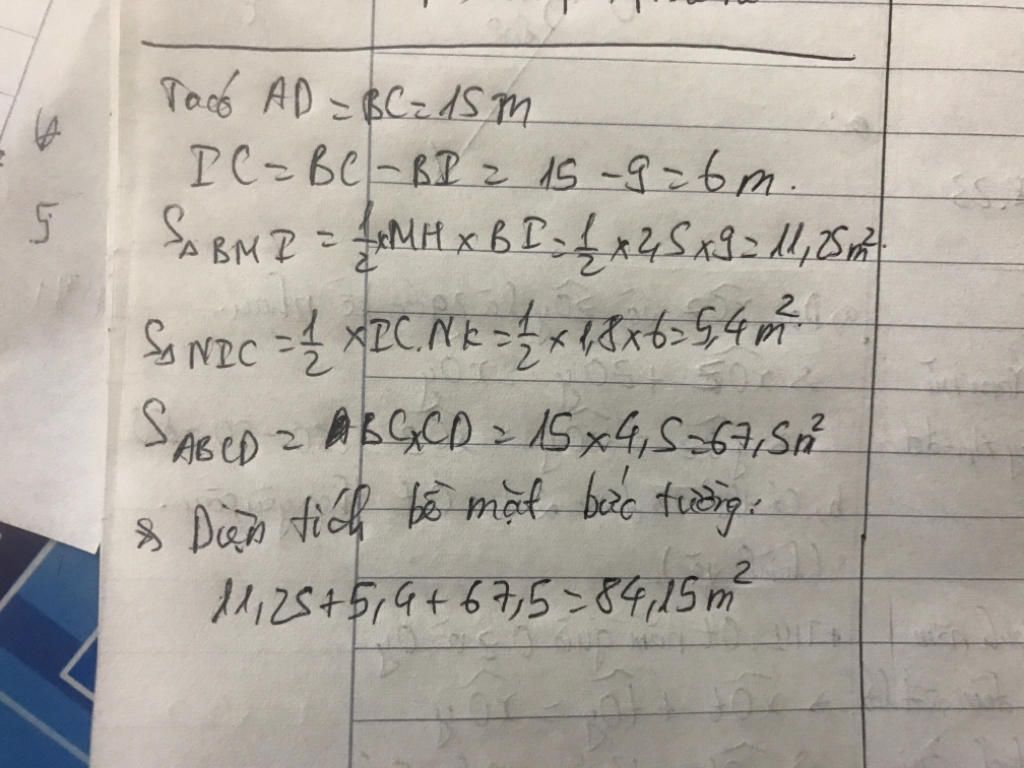 Ta có AD = BC = 15 m
IC = BC - BI = 15 - 9 = 6 m.
S△BMI = 1/2 × MH × BI = 1/2 × 2,5 × 9 = 11,25 m².
S△NIC = 1/2 × IC.NK = 1/2 × 1,8 × 6 = 5,4 m².
SABCD = BC × CD = 15 × 4,5 = 67,5 m²
Diện tích bề mặt bức tường:
11,25 + 5,4 + 67,5 = 84,15 m²
5